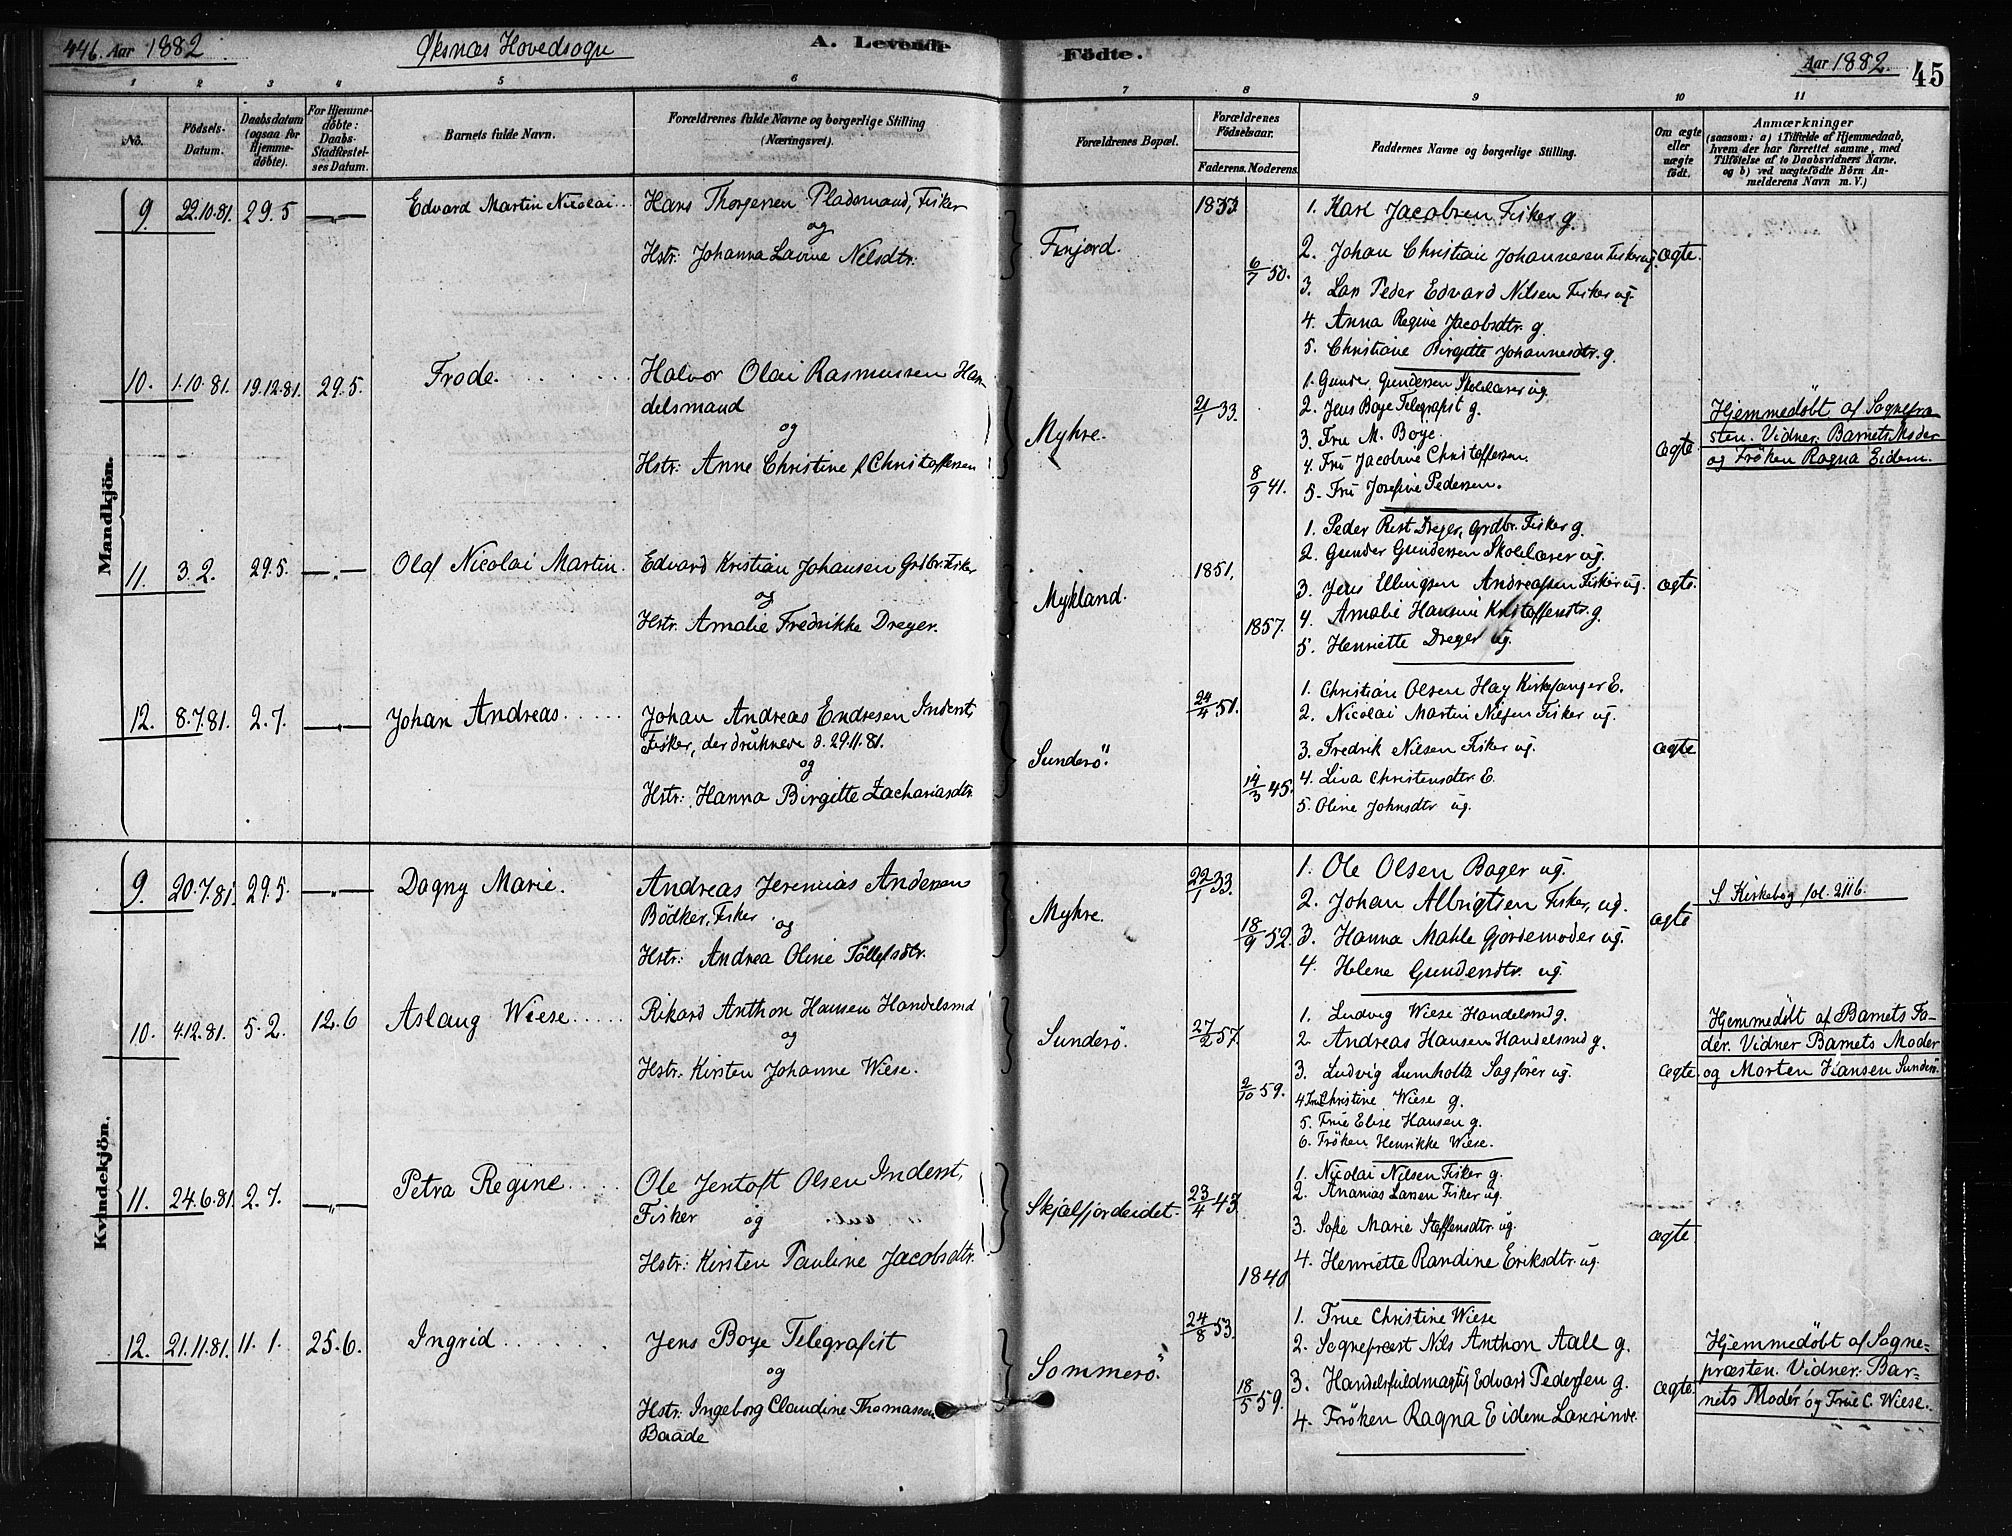 446. Aar 1882
Øksnæs Hovedsogn
A. Levende
Födte.
Aar 1882.
45
1 2 3 4 5 6 7 8 9 10 11
No.
Födsels-
Datum.
Daabsdatum
(ogsaa for
Hjemme-
döbte).
For Hjemme-
döbte:
Daabs-
Stadfæstel-
ses Datum.
Barnets fulde Navn.
Forældrenes fulde Navne og borgerlige Stilling
(Næringsvei).
Forældrenes Bopæl.
Forældrenes
Födselsaar.
Faderens. Moderens.
Faddernes Navne og borgerlige Stilling.
Om ægte
eller
uægte
födt.
Anmærkninger
(saasom: a) i Tilfælde af Hjemmedaab,
hvem der har forrettet samme, med
Tilföielse af to Daabsvidners Navne,
og b) ved uægtefödte Börn An-
melderens Navn m. V.)
Mandkjön.
9. 22.10.81. 29.5 —„— Edvard Martin Nicolai..
Hans Thorgersen Pladsmand, Fisker
og
Hstr: Johanna Lavine Nilsdtr.
Finjord.
1833.
6/7 50.
1. Karl Jacobsen Fisker g.
2. Johan Christian Johannesen Fisker ug.
3. Lars Peder Edvard Nilsen Fisker ug.
4. Anna Regine Jacobsdtr. g.
5. Christiane Birgitte Johannesdtr. g.
ægte.
10. 1.10.81. 19.12.81. 29.5. Frode.
Halvor Olai Rasmussen Han-
delsmand
og
Hstr: Anne Christine f. Christoffersen
Myhre.
21/1 33.
8/9 41.
1. Gunder Gundersen Skolelærer ug.
2. Jens Boye Telegrafist g.
3. Fru M. Boye.
4. Fru Jacobine Christoffersen.
5. Fru Josefine Pedersen.
ægte
Hjemmedøbt af Sognepræ-
sten. Vidner: Barnets Moder
og Frøken Ragna Eidem.
11. 3.2. 29.5. —„— Olaf Nicolai Martin.
Edvard Kristian Johansen Grdbr. Fisker
og
Hstr. Amalie Fredrikke Dreyer.
Mykland.
1851.
1857.
1. Peder Rist Dreyer, Grdbr. Fisker g.
2. Gunder Gundersen Skolelærer ug.
3. Jens Ellingsen Andreassen Fisker ug.
4. Amalie Hansine Kristoffersdtr. g.
5. Henriette Dreyer ug.
ægte.
12. 8.7.81. 2.7. —„— Johan Andreas.
Johan Andreas Endresen Inderst,
Fisker, der druknede d. 29.11.81.
og
Hstr: Hanna Birgitte Zachariasdtr.
Sunderö.
24/4 51.
14/3 45.
1. Christian Olsen Hay Kirkesanger E.
2. Nicolai Martin Nilsen Fisker ug.
3. Fredrik Nilsen Fisker ug.
4. Liva Christensdtr. E.
5. Oline Johnsdtr ug.
ægte
Kvindekjön.
9. 20.7.81. 29.5. —„— Dagny Marie.
Andreas Jeremias Andersen
Bödker, Fisker.
og
Hstr: Andrea Oline Töllefsdtr.
Myhre.
22/1 33.
18/9 52.
1. Ole Olsen Bager ug.
2. Johan Albrigtsen Fisker, ug.
3. Hanna Mahle Gjordemoder ug.
4. Helene Gundersdtr. ug.
ægte
S. Kirkebog fol. 211b.
10. 4.12.81. 5.2. 12.6 Aslaug Wiese.
Rikard Anthon Hansen Handelsmd
og
Hstr: Kirsten Johanne Wiese.
Sunderö.
27/2 57.
2/10 59.
1. Ludvig Wiese Handelsmd g.
2. Andreas Hansen Handelsmd g.
3. Ludvig Lumholtz Sagfører ug.
4. Frue Christine Wiese g.
5. Frue Elise Hansen g.
6. Frøken Henrikke Wiese.
ægte.
Hjemmedøbt af Barnets Fa-
der. Vidner Barnets Moder
og Morten Hansen Sunderö.
11. 24.6.81. 2.7. —„— Petra Regine.
Ole Jentoft Olsen Inderst,
Fisker
og
Hstr: Kirsten Pauline Jacobsdtr.
Skjælfjordeidet.
23/4 43.
1840
1. Nicolai Nilsen Fisker g.
2. Ananias Larsen Fisker ug.
3. Sofie Marie Steffensdtr. ug.
4. Henriette Randine Eriksdtr. ug.
ægte
12. 21.11.81. 11.1. 25.6. Ingrid
Jens Boye Telegrafist
og
Hstr: Ingeborg Claudine Thomassen
Baade
Sommerö.
24/8 53.
18/5 59.
1. Frue Christine Wiese
2. Sognepræst Nils Anthon Aall g.
3. Handelsfuldmægtig Edvard Pedersen g.
4. Frøken Ragna Eidem
ægte.
Hjemmedøbt af Sogne-
præsten. Vidner: Bar-
nets Moder og Frue C. Wiese.